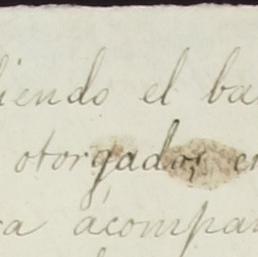 iendo el ba
otorgados, e
a acompa